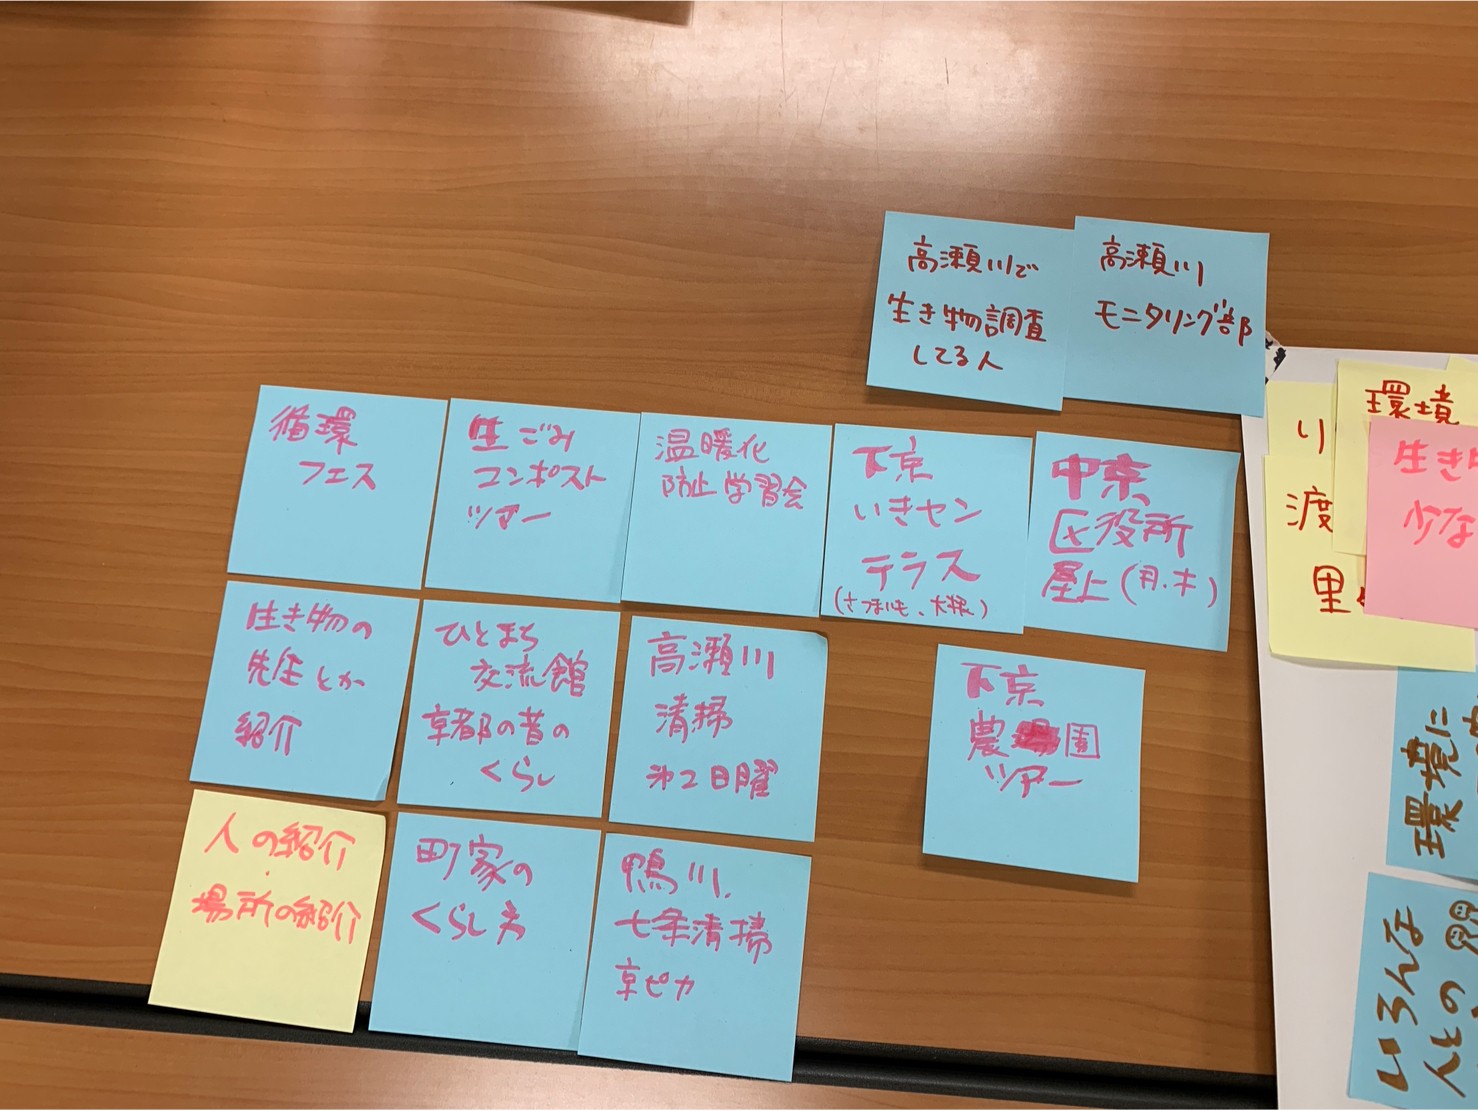 高瀬川で
生き物調査
してる人
高瀬川
モニタリング部
循環
フェス
生ごみ
コンポスト
ツアー
温暖化
防止学習会
下京
いきセン
テラス
(さつまいも、大根)
中京
区役所
屋上(月.木)
生き物の
先生とか
紹介
ひとまち
交流館
京都の昔の
くらし
高瀬川
清掃
第2日曜
下京
農園
ツアー
人の紹介
場所の紹介
町家の
くらし方
鴨川.
七条清掃
京ピカ
環境
り
渡
里
生き
少な
環境に
いろんな
人との